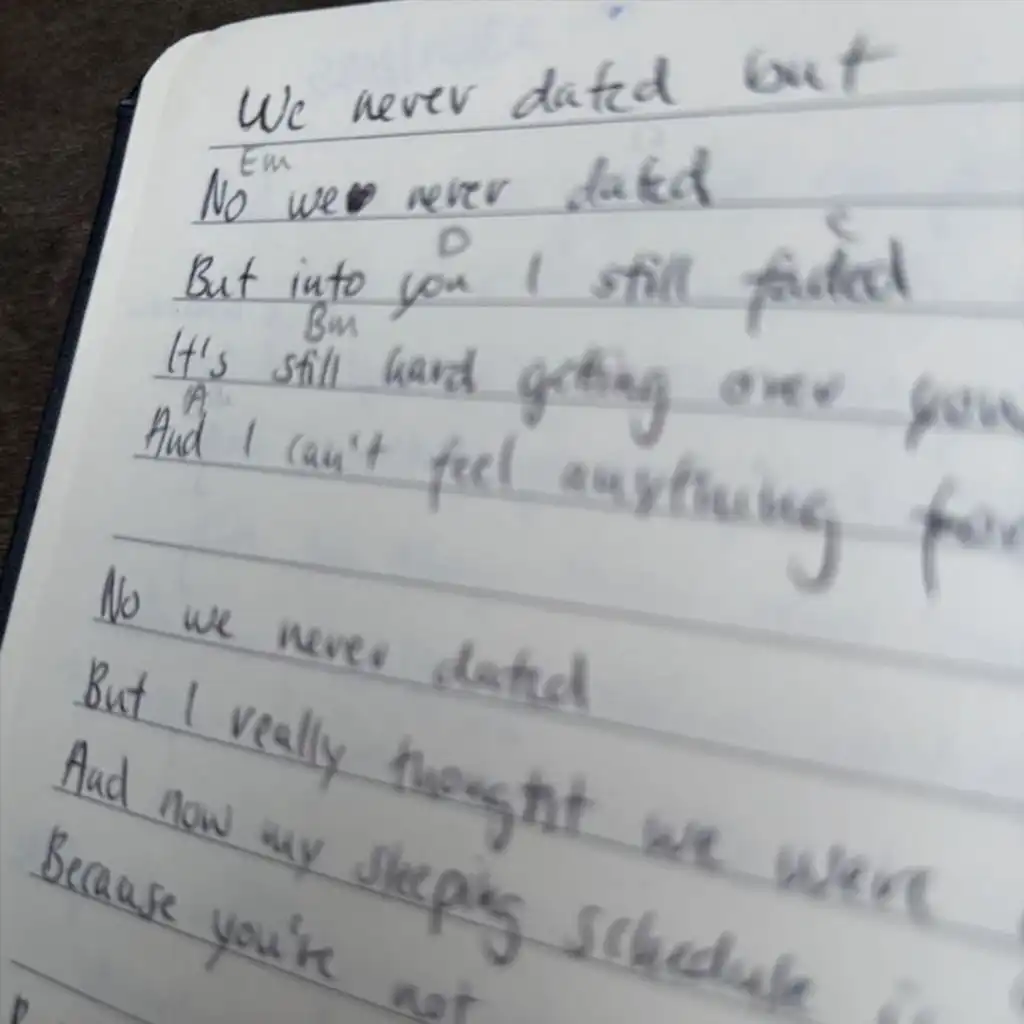 We never dated but
Em
No we never dated
D C
But into you I still faded
Bm
It's still hard getting over you
A
And I can't feel anything for
No we never dated
But I really thought we were
And now my sleeping schedule is
Because you're not